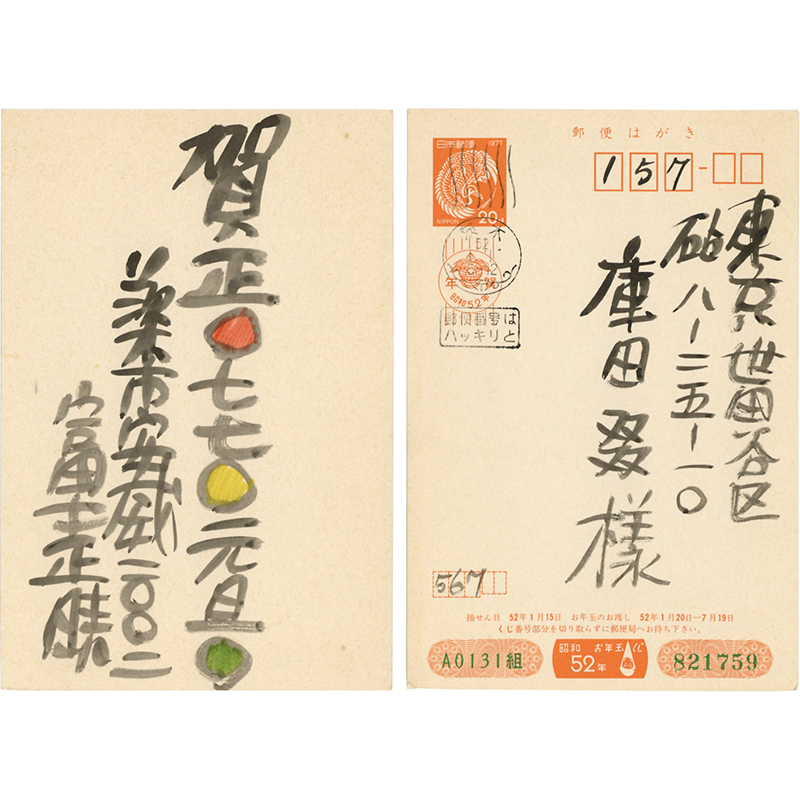 賀正〇七七〇元旦〇
茨木市安威一〇〇二
富士正晴
郵便はがき
157
日本郵便 1977
NIPPON 20
年賀
昭和52年
郵便番号は
ハッキリと
東京世田谷区
砧八ー二五ー一〇
庫田叕様
567
抽せん日 52年1月15日 お年玉のお渡し 52年1月20日―7月19日
くじ番号部分を切り取らずに郵便局へお持ち下さい。
A0131組
昭和52年 お年玉くじ
821759